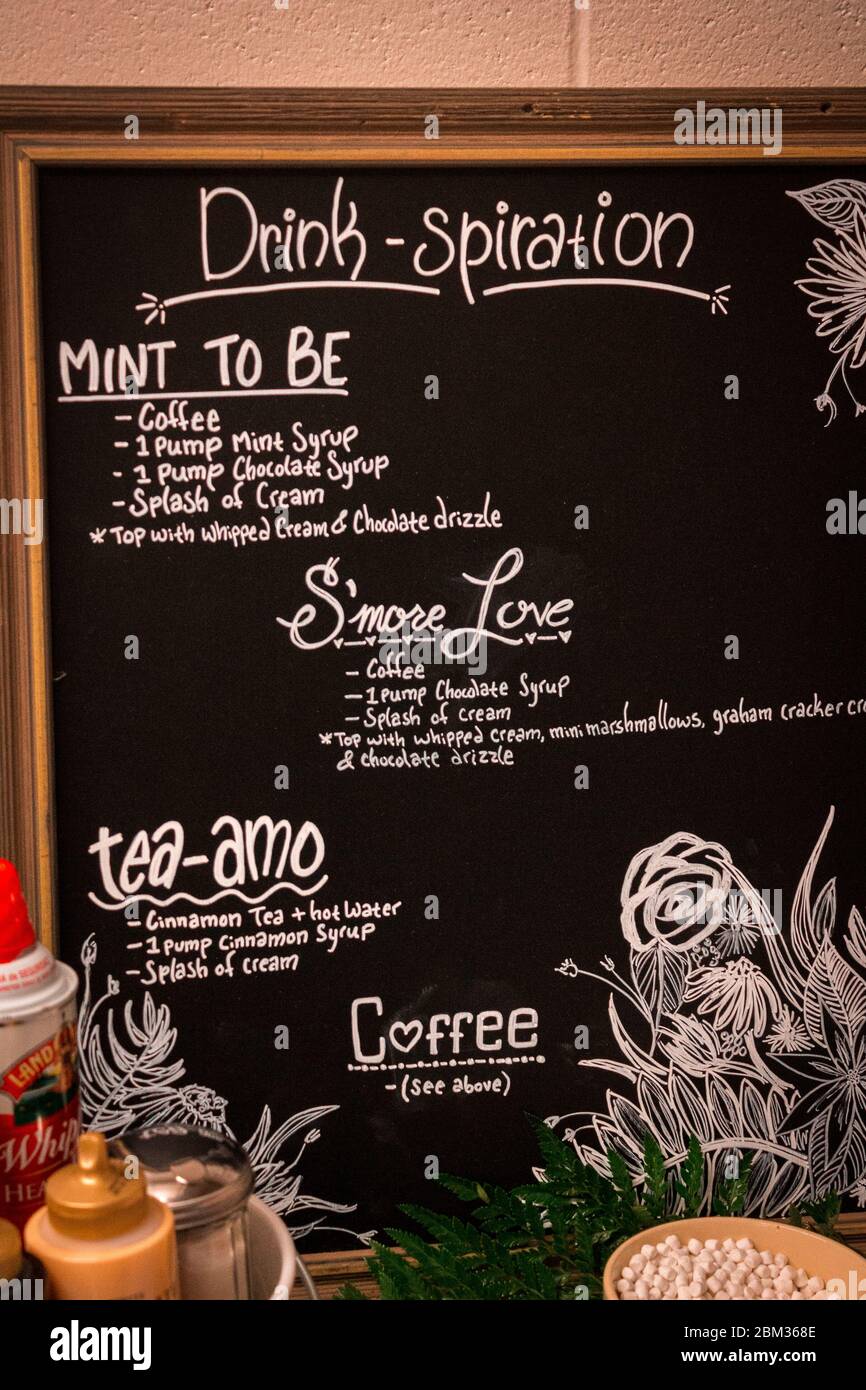 Drink-spiration
MINT TO BE
- Coffee
- 1 Pump Mint Syrup
- 1 Pump Chocolate Syrup
- Splash of Cream
* Top with Whipped Cream & Chocolate drizzle
S'more Love
- Coffee
- 1 Pump Chocolate Syrup
- Splash of cream
* Top with whipped cream, mini marshmallows, graham cracker
& chocolate drizzle
tea-amo
- Cinnamon Tea + hot Water
- 1 pump Cinnamon Syrup
- Splash of cream
Coffee
- (see above)
LAND
Whip
HEA
alamy
Image ID: 2BM368E
www.alamy.com